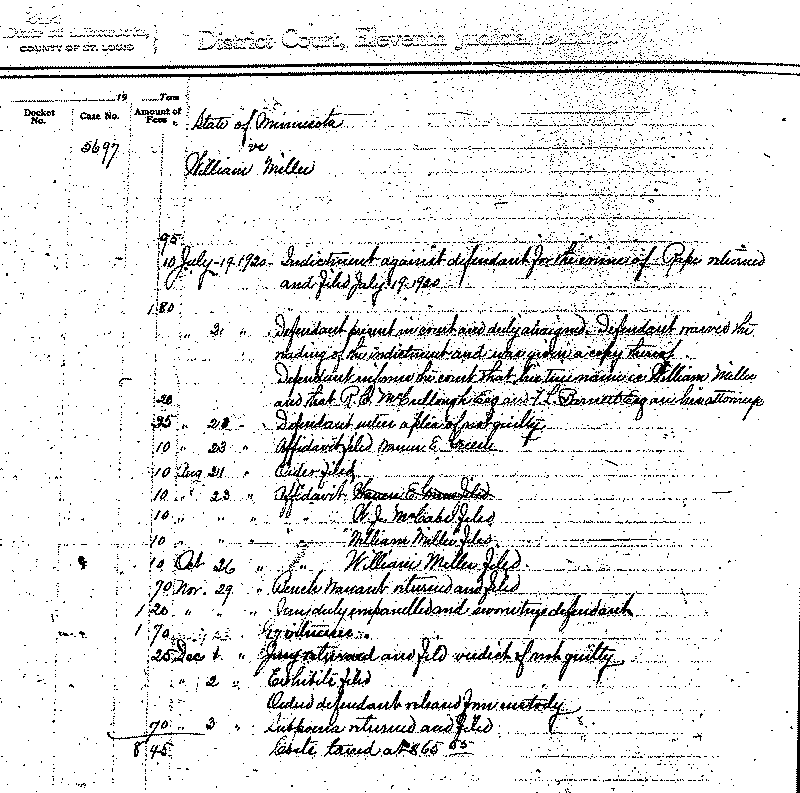 State of Minnesota,
COUNTY OF ST. LOUIS
District Court, Eleventh Judicial District
19 Term
Docket No. Case No. Amount of Fees
State of Minnesota
5697 vs
William Miller
95
10 July-19-1920- Indictment against defendant for the crime of Rape returned
and filed July 19-1920
1 80
" 21 " Defendant present in court and duly arraigned. Defendant waived the
reading of the indictment and was given a copy thereof
Defendant informs the court that his true name is William Miller
20 and that R.E. McCullough Esq and F.L. Esq are his attorneys
35 " " Defendant enters a plea of not guilty
10 " 23 " Affidavit filed E.
10 Aug 21 " Order filed
10 " 23 " Affidavit E. filed
10 " " " " McCabe filed
10 " " " " William Miller filed
10 Oct 26 " " William Miller filed
70 Nov. 29 " Bench Warrant returned and filed
1 20 " " " Jury duly empanelled and sworn try defendant
1 70 witnesses
25 Dec 1 " Jury returned and filed verdict of not guilty
" 2 " Exhibits filed
Ordered defendant released from custody
70 " 3 " Subpoena returned and filed
8 45 Costs taxed at $865 55